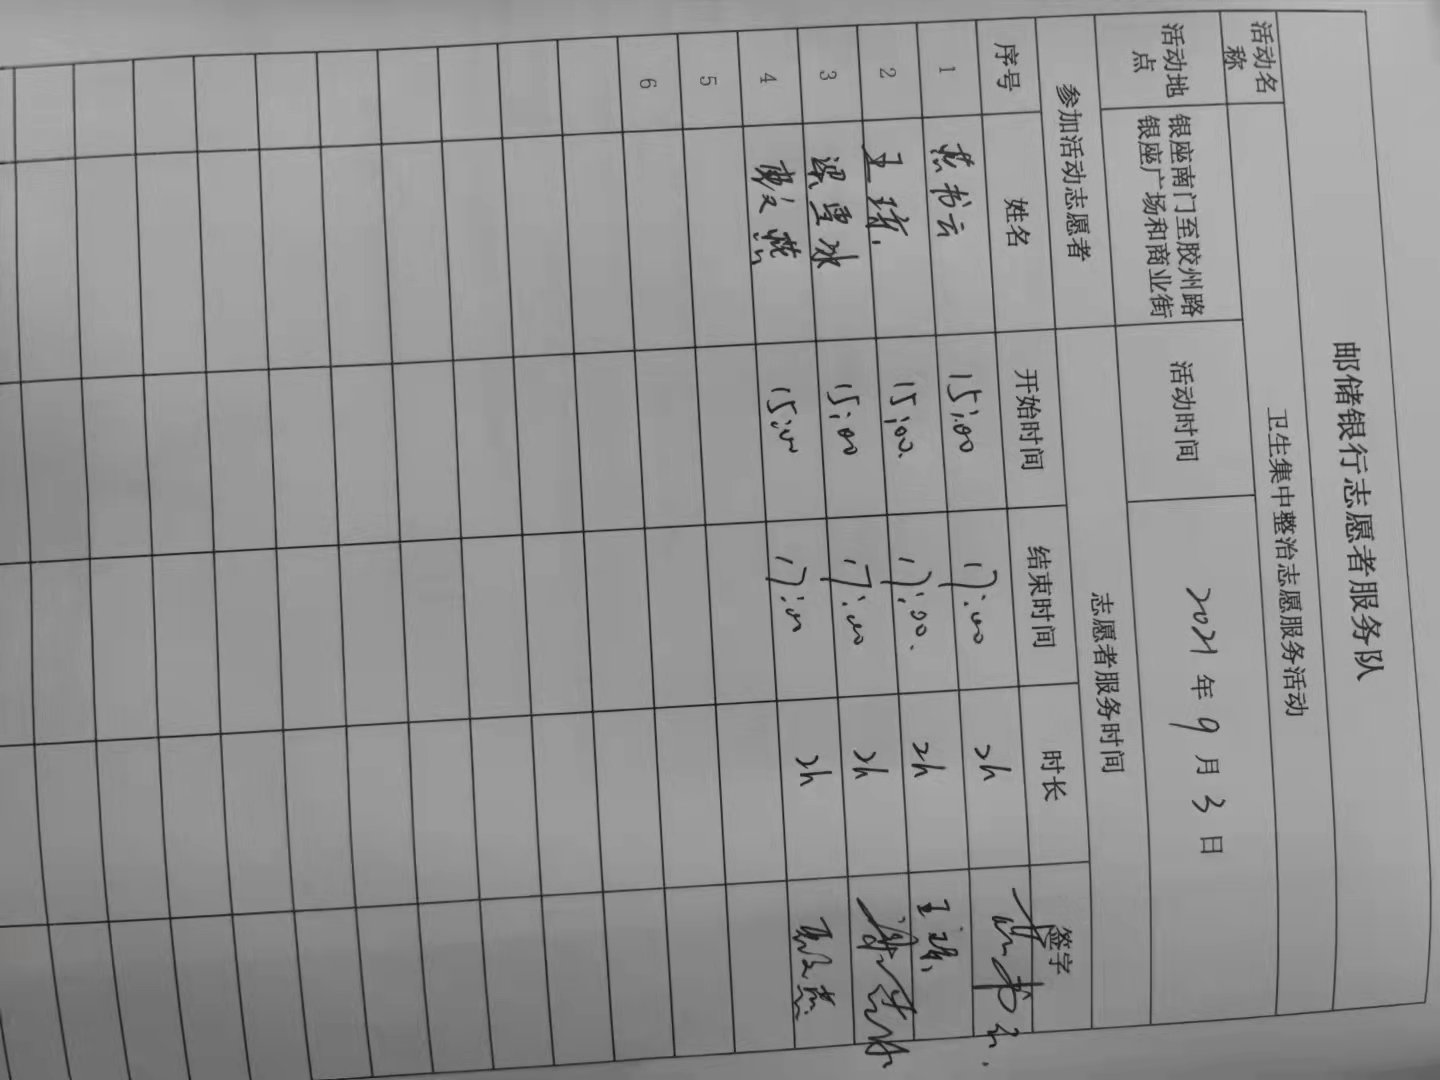 邮储银行志愿者服务队
活动名称 卫生集中整治志愿服务活动
活动地点 银座南门至胶州路银座广场和商业街 活动时间 2021年9月3日
参加活动志愿者 志愿者服务时间
序号 姓名 开始时间 结束时间 时长 签字
1 书云 15:00 17:00 2h 书云
2 王 15:00 17:00 2h 王
3 梁雪冰 15:00 17:00 2h 梁雪冰
4 15:00 17:00 2h
5
6